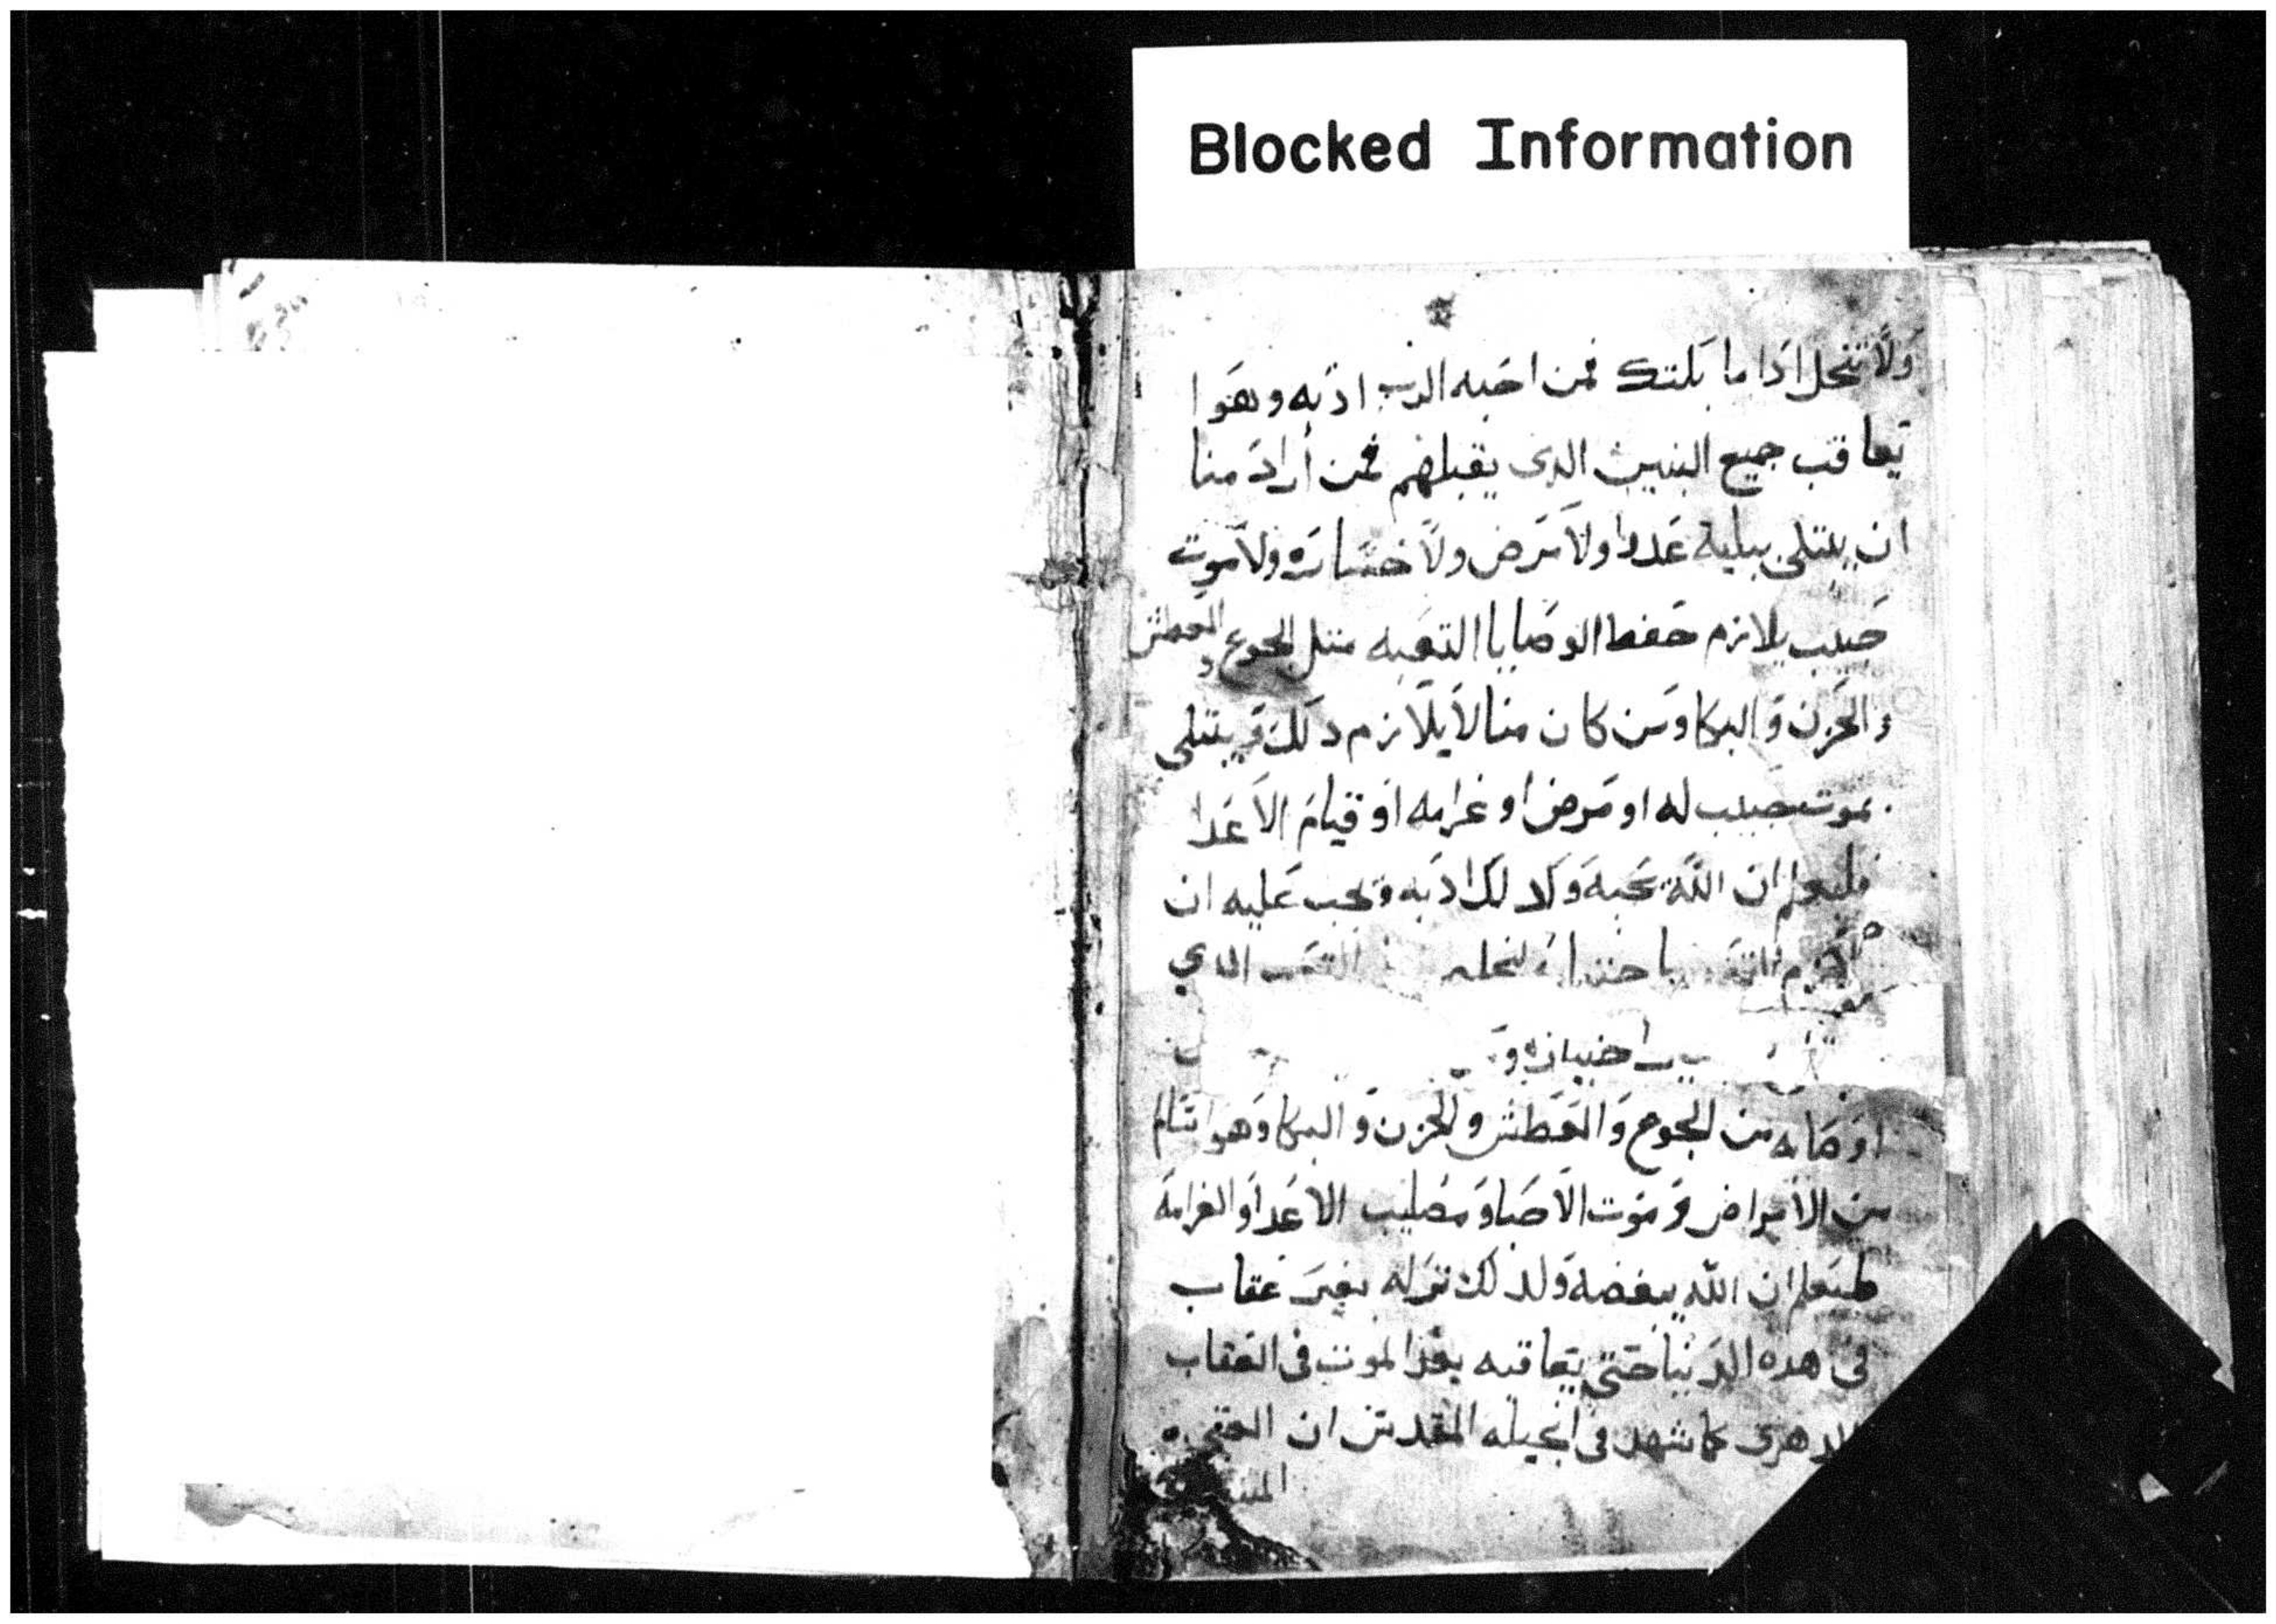 Blocked Information
ولا تنحل اذا ما بكتك فمن احبه الرب ادبه وهوا
يعاقب جميع البنين الدى يقبلهم فمن أراد منا
ان يبتلى ببلية عدوا ولا مرض ولا خسارة ولا موت
حبيب يلازم حفظ الوصايا التعبه متل الجوع والعطش
والحزن والبكا ومن كان منا لا يلازم دلك ويبتلى
بموت حبيب له او مرض او غرامه او قيام الاعدا
فليعلم ان الله يحبه وكدلك ادبه ويجب عليه ان
التعب الدي
اوصا به من الجوع والعطش والحزن والبكا وهوا سالم
من الامراض وموت الاحبا ومصليب الاعدا والغرامة
فليعلم ان الله يبغضه ولدلك تركه بغير عقاب
فى هده الدنيا حتى يعاقبه بعد الموت فى العقاب
الدهرى كما شهد فى انجيله المقدس ان